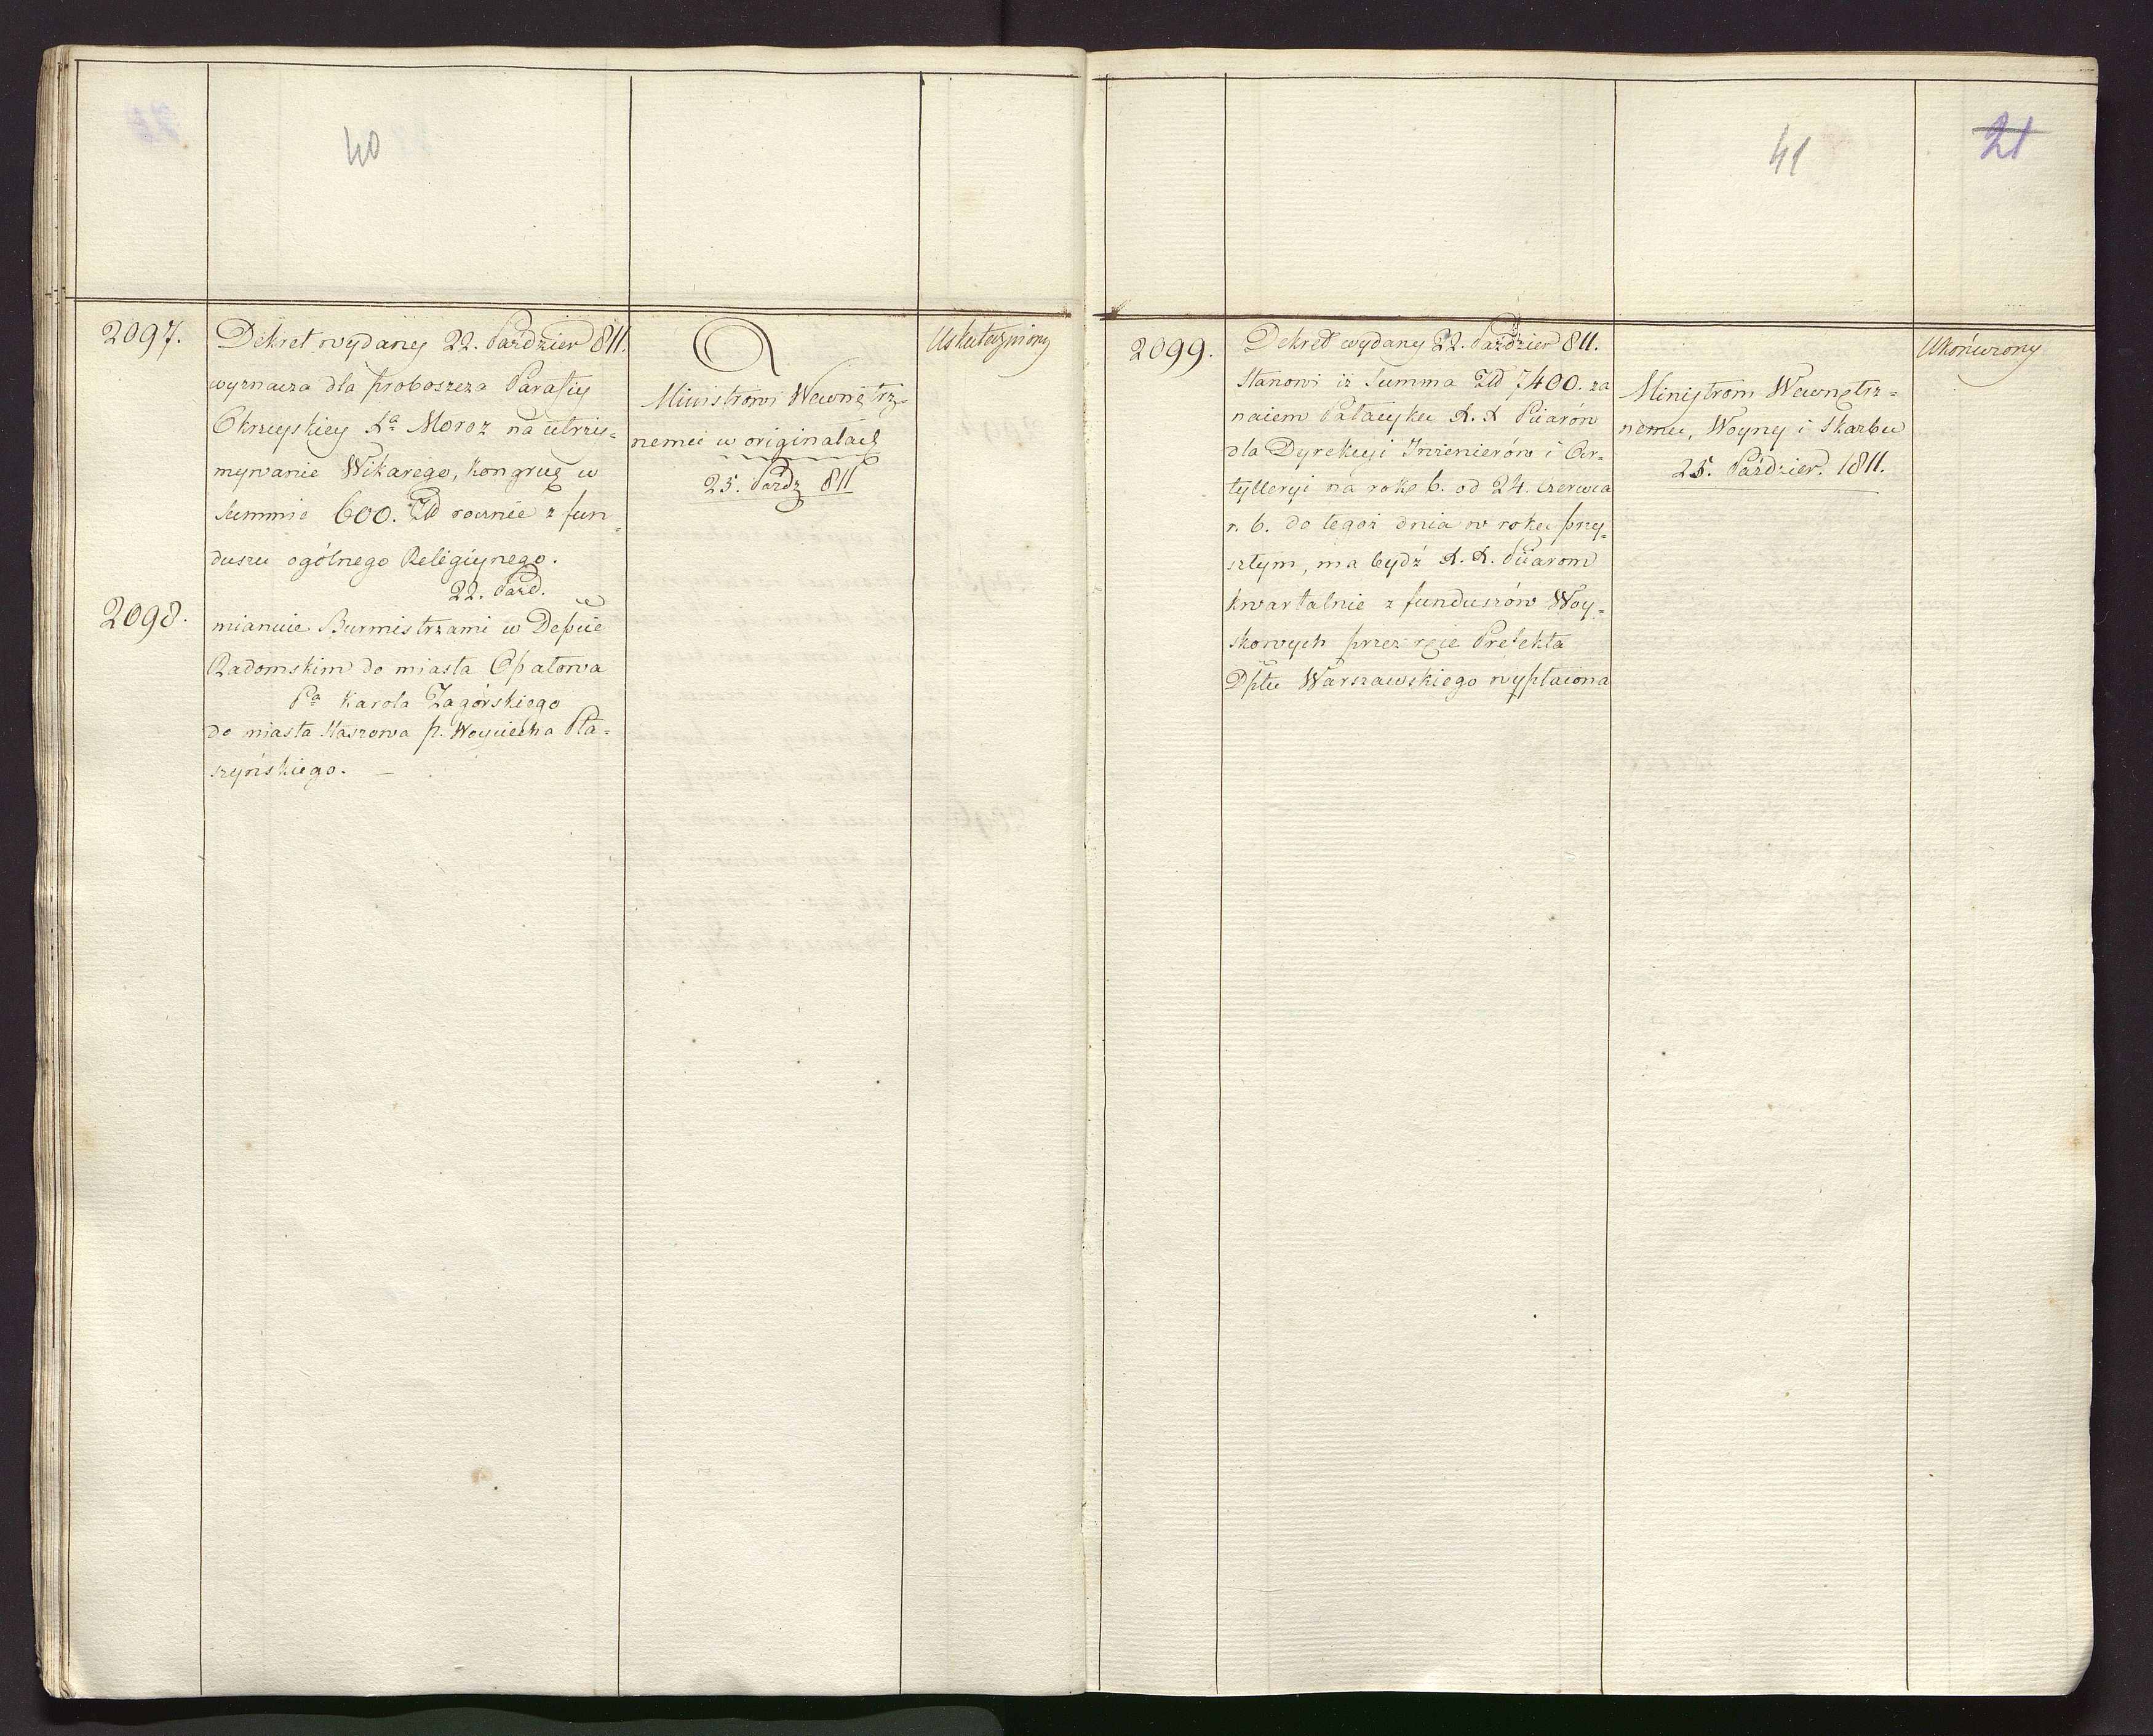 40
2097.
Dekret wydany 22. Paździer 811.
wyznacza dla proboszcza Parafiy
Okrzeyskiey Xa Moroz na utrzy-
mywanie Wikarego, kongruę w
summie 600. Zld rocznie z fun-
duszu ogólnego Religiynego.
22. Paźd.
2098.
mianuie Burmistrzami w Depcie
Radomskim do miasta Opatowa
Pa Karola Zagórskiego
do miasta Staszowa p. Woyciecha Pła-
szyńskiego. —
Ministrowi Wewnętrz-
nemu w originałach
25. Paźdz 811
Uskuteczniony
41
21
2099.
Dekret wydany 22. Paździer 811.
Stanowi iż Summa Zld 7400. za
naiem Pałacyku X. X Piiarów
dla Dyrekcyi Inżenierów i Ar-
tylleryi na rok b. od 24. czerwca
r. b. do tegoż dnia w roku przy-
szłym, ma bydź X. X. Piiarom
kwartalnie z funduszów Woy-
skowych przez ręce Prefekta
Dptu Warszawskiego wypłacona
Ministrom Wewnętrz-
nemu, Woyny i Skarbu
25. Paździer. 1811.
Ukończony